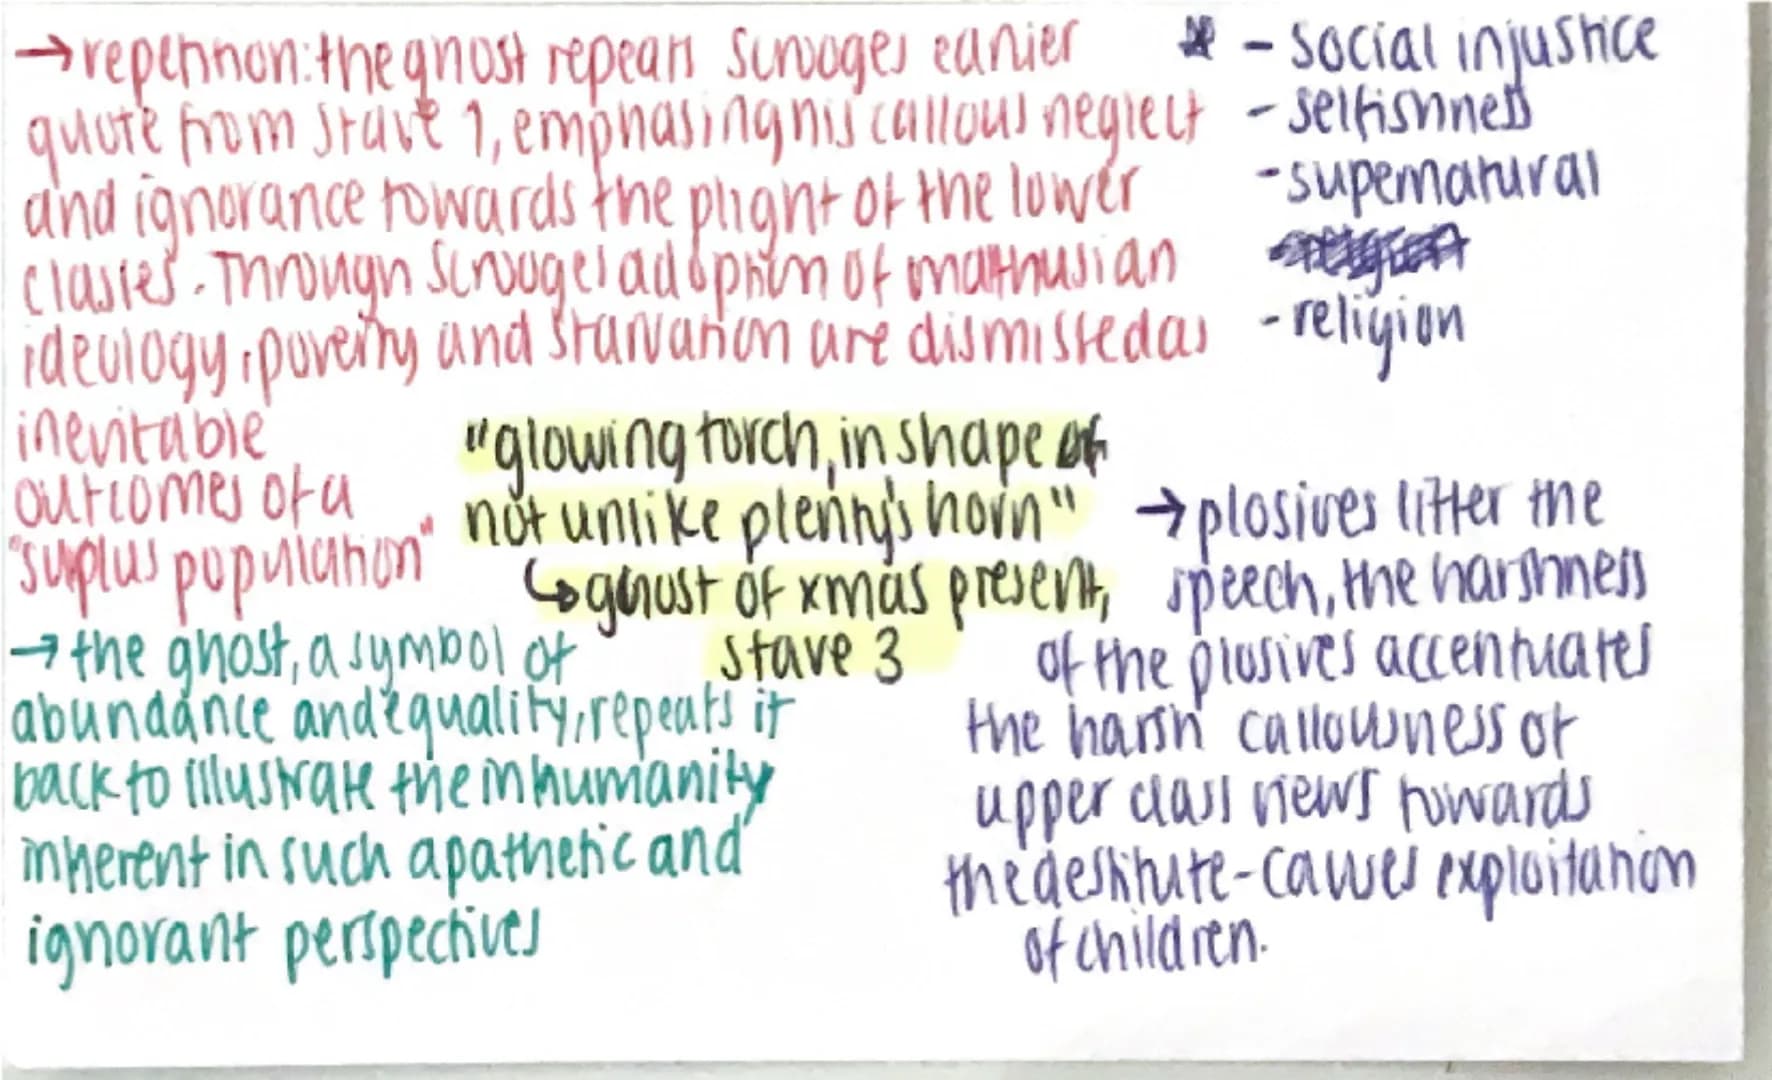 →repetition: the ghost repeats Scrooges earlier
quote from stave 1, emphasing his callous neglect
and ignorance towards the plight of the lower
classes. Through Scrooges adoption of malthusian
ideology, poverty and starvation are dismissed as
inevitable
outcomes of a
"surplus population"
→ the ghost, a symbol of
abundance and equality, repeats it
back to illustrate the inhumanity
inherent in such apathetic and
ignorant perspectives
- social injustice
- selfishness
- supernatural
- religion
"glowing torch, in shape of
not unlike plenty's horn"
↳ ghost of xmas present,
stave 3
→ plosives litter the
speech, the harshness
of the plosives accentuates
the harsh callousness of
upper class views towards
the destitute - causes exploitation
of children.